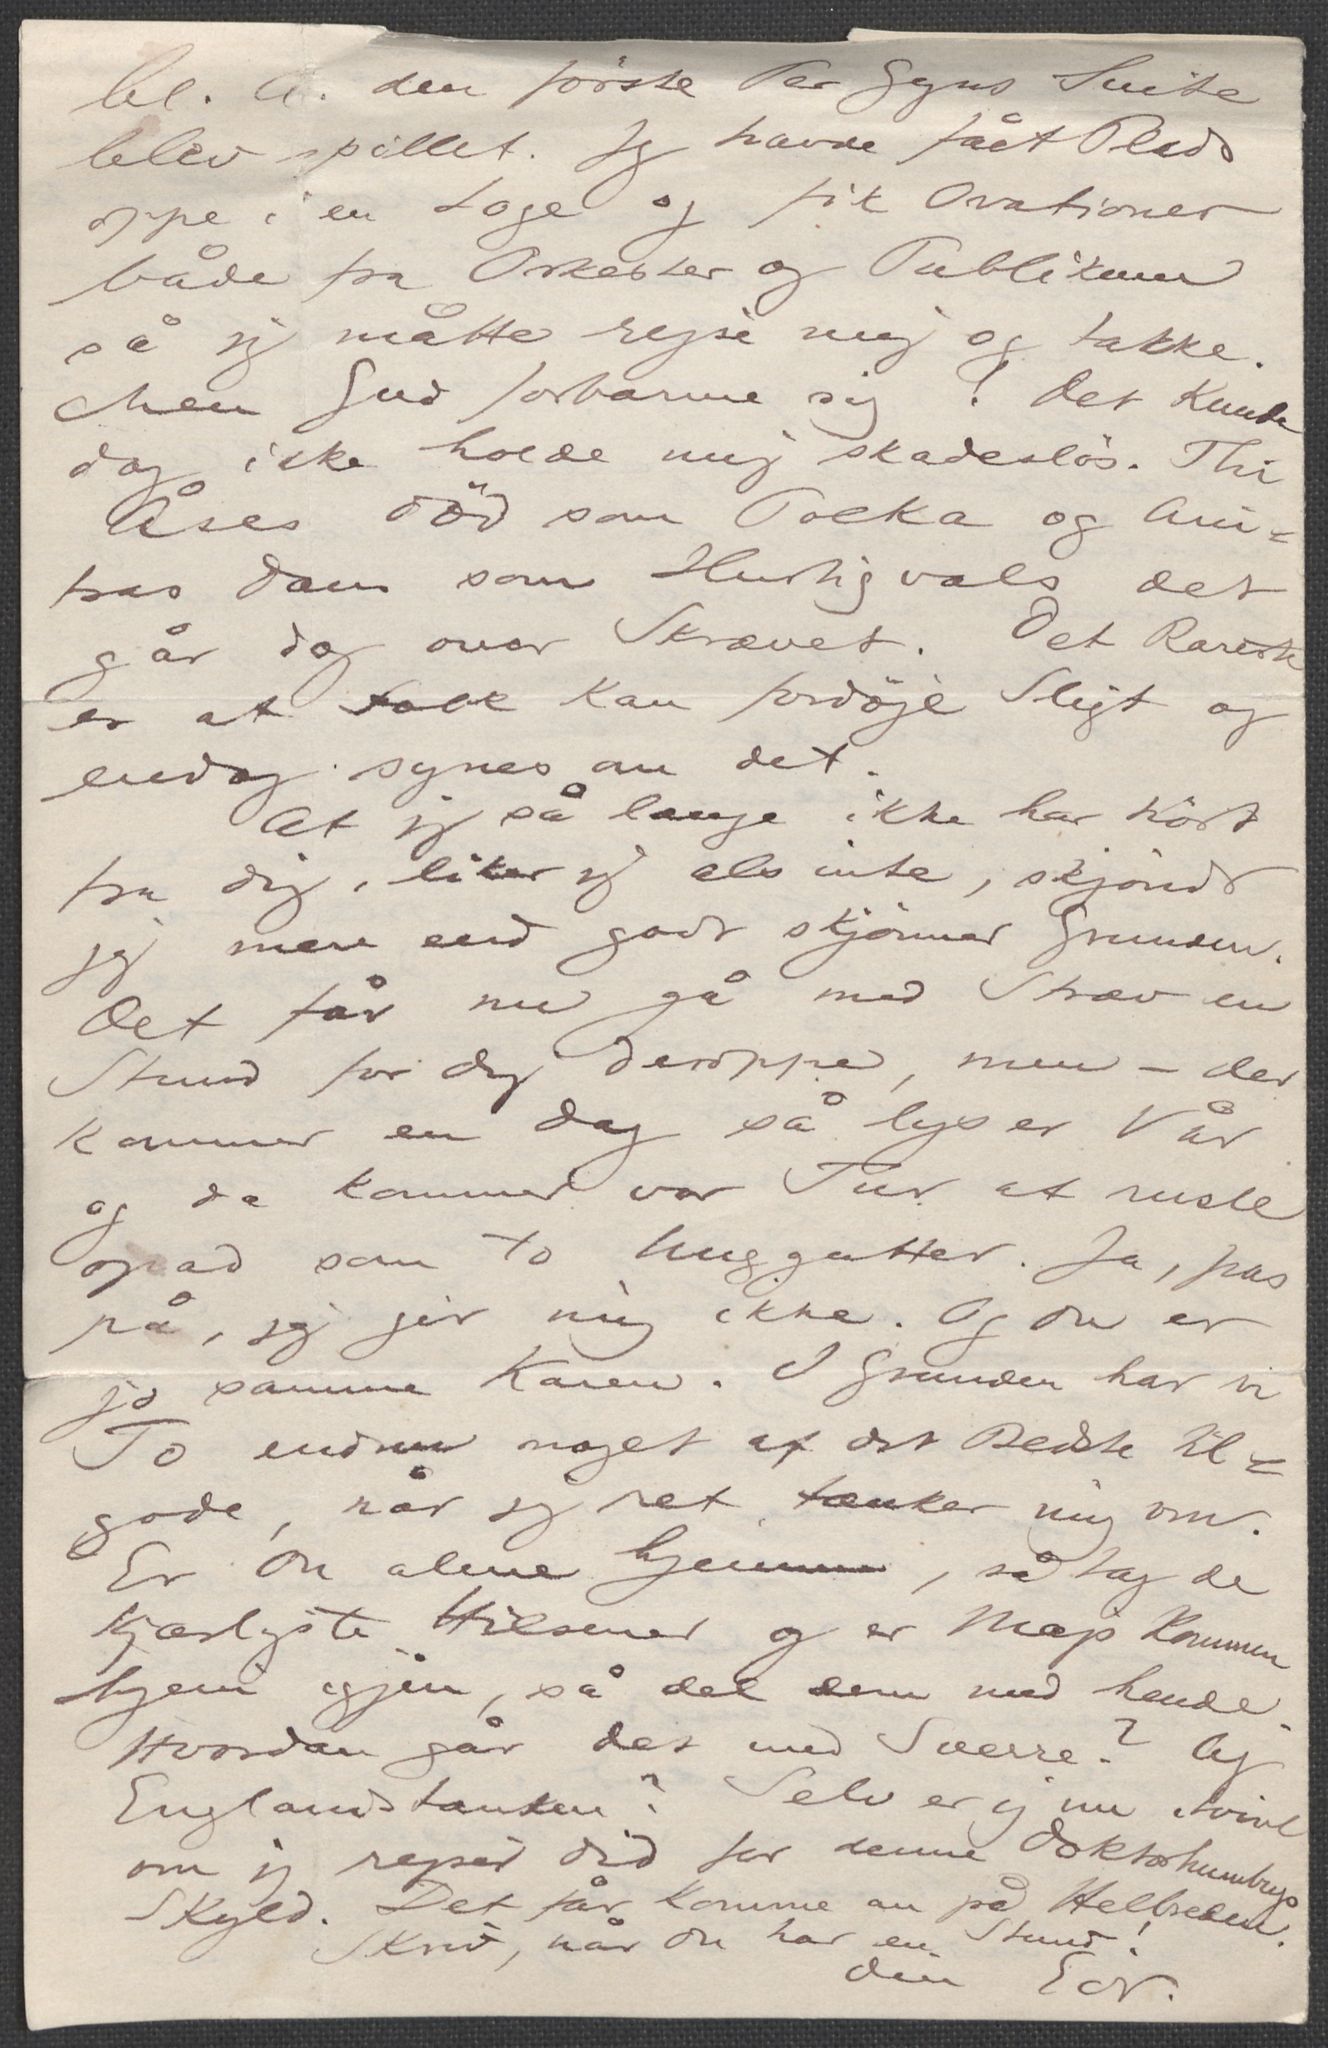 bl. A. den förste Per Gynt Suite
blev spillet. Jg havde fåt Plads
oppe i en Loge og fik Ovationer
både fra Orkester og Publikum
så jg måtte rejse mig og takke.
Men Gud forbarme sig! Det kunde
dog ikke holde mig skadeslös. Thi
Åses Död som Polka og Ani-
tras Dans som Hurtigvals det
går dog over Skrævet. Det Rareste
er at Folk kan fordöje Sligt og
endog synes om det.
At jg så længe ikke har hört
fra dig, liker jg als inte, skjöndt
jg mere end godt skjönner Grunden.
Det får nu gå med Stræv en
Stund for dig deroppe, men – der
kommer en Dag så lys er Vår
og da kommer vor Tur at rusle
opad som to Huggutter. Ja, pas
på, jg gir mig ikke. Og du er
jo samme Karen. I Grunden har vi
To endnu noget af det Bedste til-
gode, når jg ret tænker mig om.
Er du alene hjemme, så tag de
kjærligste Hilsener og er Majs kommen
hjem igjen, så del dem med hende.
Hvordan går det med Sverre? Og
Englandstanken? Selv er jg nu i tvivl
om jg rejser did for denne Doktorhumbugs
Skyld. Det får komme an på Helbreden.
Skriv, når du har en Stund!
din Edv.